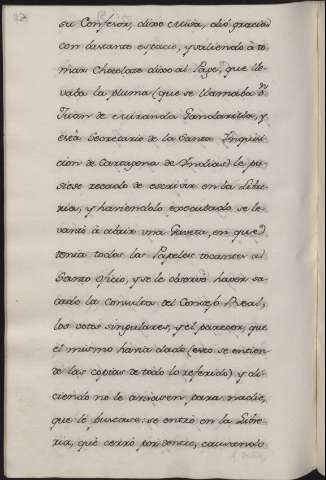 su Confesor, dixo Missa, dió gracias
con bastante espacio, y saliendo à to-
mar Chocolate dixo al Page, que lle-
vaba la pluma (que se llamaba Dn
Juan de Miranda Gamdarillas, y
està Secretario de la Santa Inquisi-
cion de Cartagena de Yndias) le pu-
siese recado de escrivir en la Libre-
ria, y haviendolo executado se le-
vantò à abrir una Gaveta, en que
tenia todos los Papeles tocantes al
Santo Oficio, y se le observò haver sa-
cado la Consulta del Consejo Real,
los votos singulares, y el parecer, que
el mismo havia dado (esto se entien-
de las copias de todo lo referido) y di-
ciendo no le avisasen para nadie,
que le buscase: se entrò en la Libre-
ria, que cerrò por dentro, causando